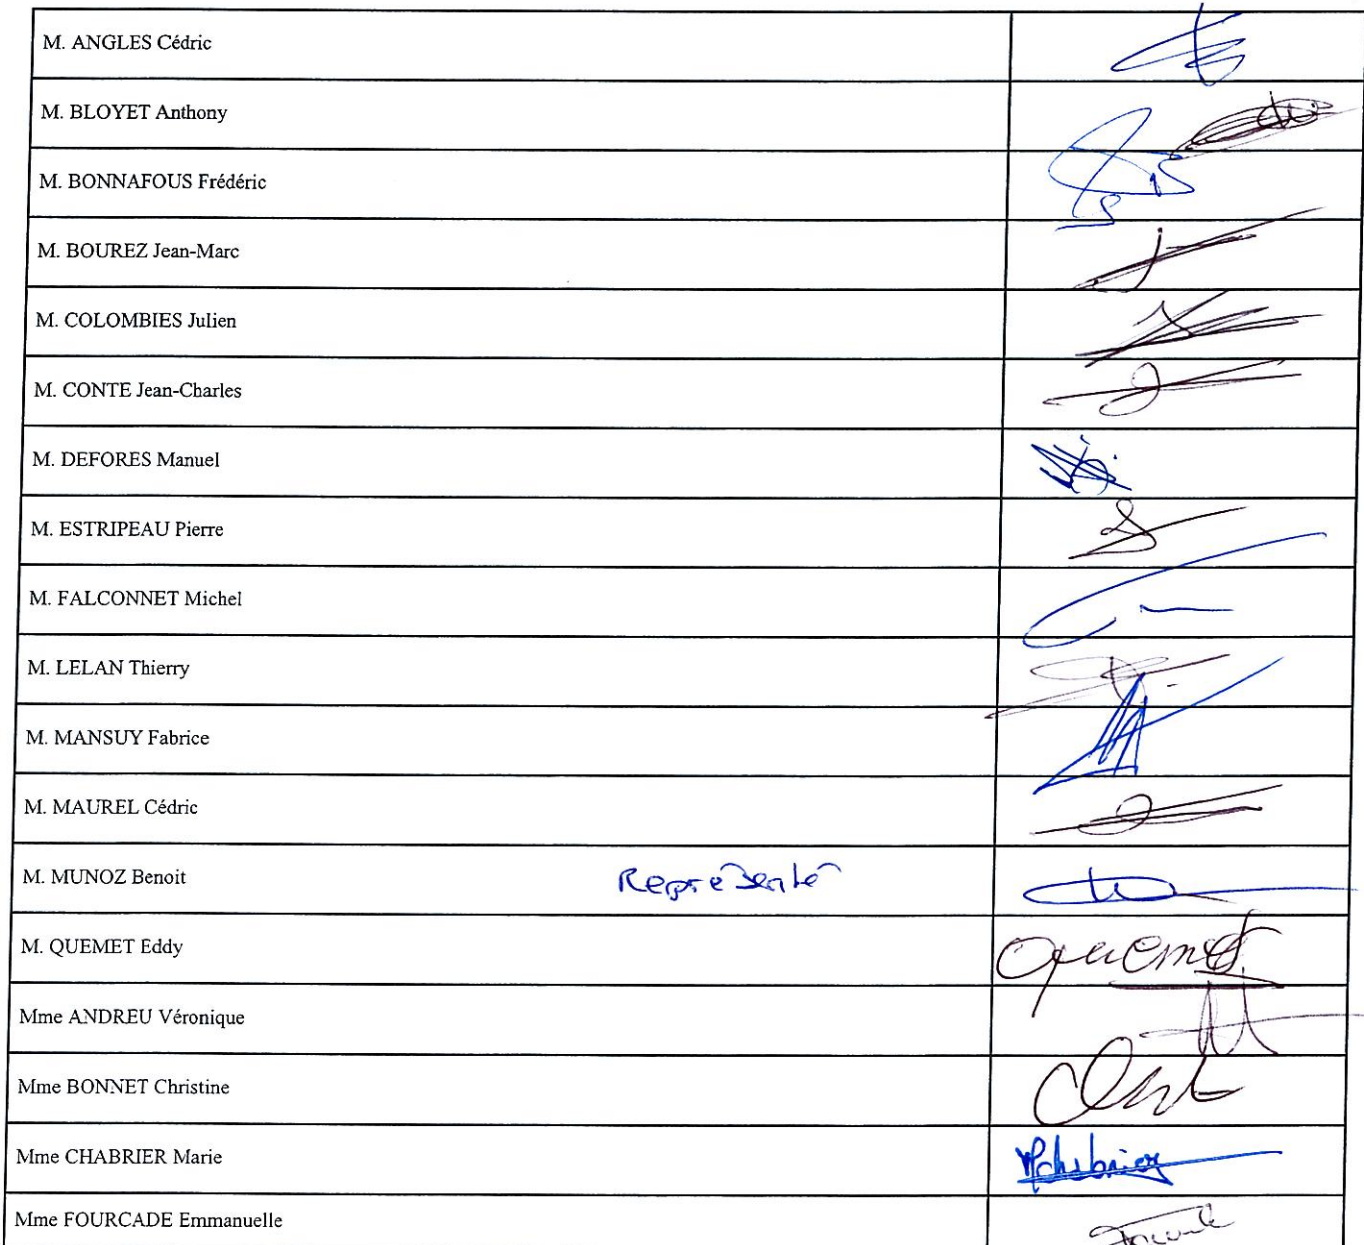 M. ANGLES Cédric
M. BLOYET Anthony
M. BONNAFOUS Frédéric
M. BOUREZ Jean-Marc
M. COLOMBIES Julien
M. CONTE Jean-Charles
M. DEFORES Manuel
M. ESTRIPEAU Pierre
M. FALCONNET Michel
M. LELAN Thierry
M. MANSUY Fabrice
M. MAUREL Cédric
M. MUNOZ Benoit Représenté
M. QUEMET Eddy Quemet
Mme ANDREU Véronique
Mme BONNET Christine
Mme CHABRIER Marie MChabrier
Mme FOURCADE Emmanuelle